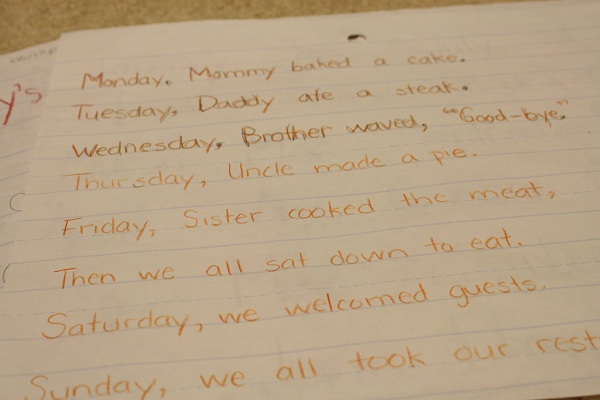 y's
Monday, Mommy baked a cake.
Tuesday, Daddy ate a steak.
Wednesday, Brother waved, "Good-bye."
Thursday, Uncle made a pie.
Friday, Sister cooked the meat,
Then we all sat down to eat.
Saturday, we welcomed guests.
Sunday, we all took our rest